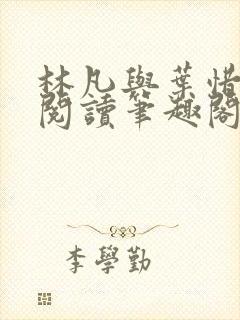 林凡與葉惜
閱讀筆趣閣
李學勤